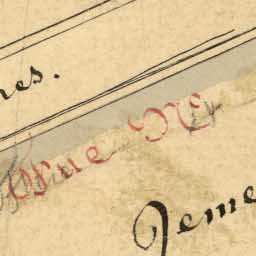 nes.
Rue N
Jeme